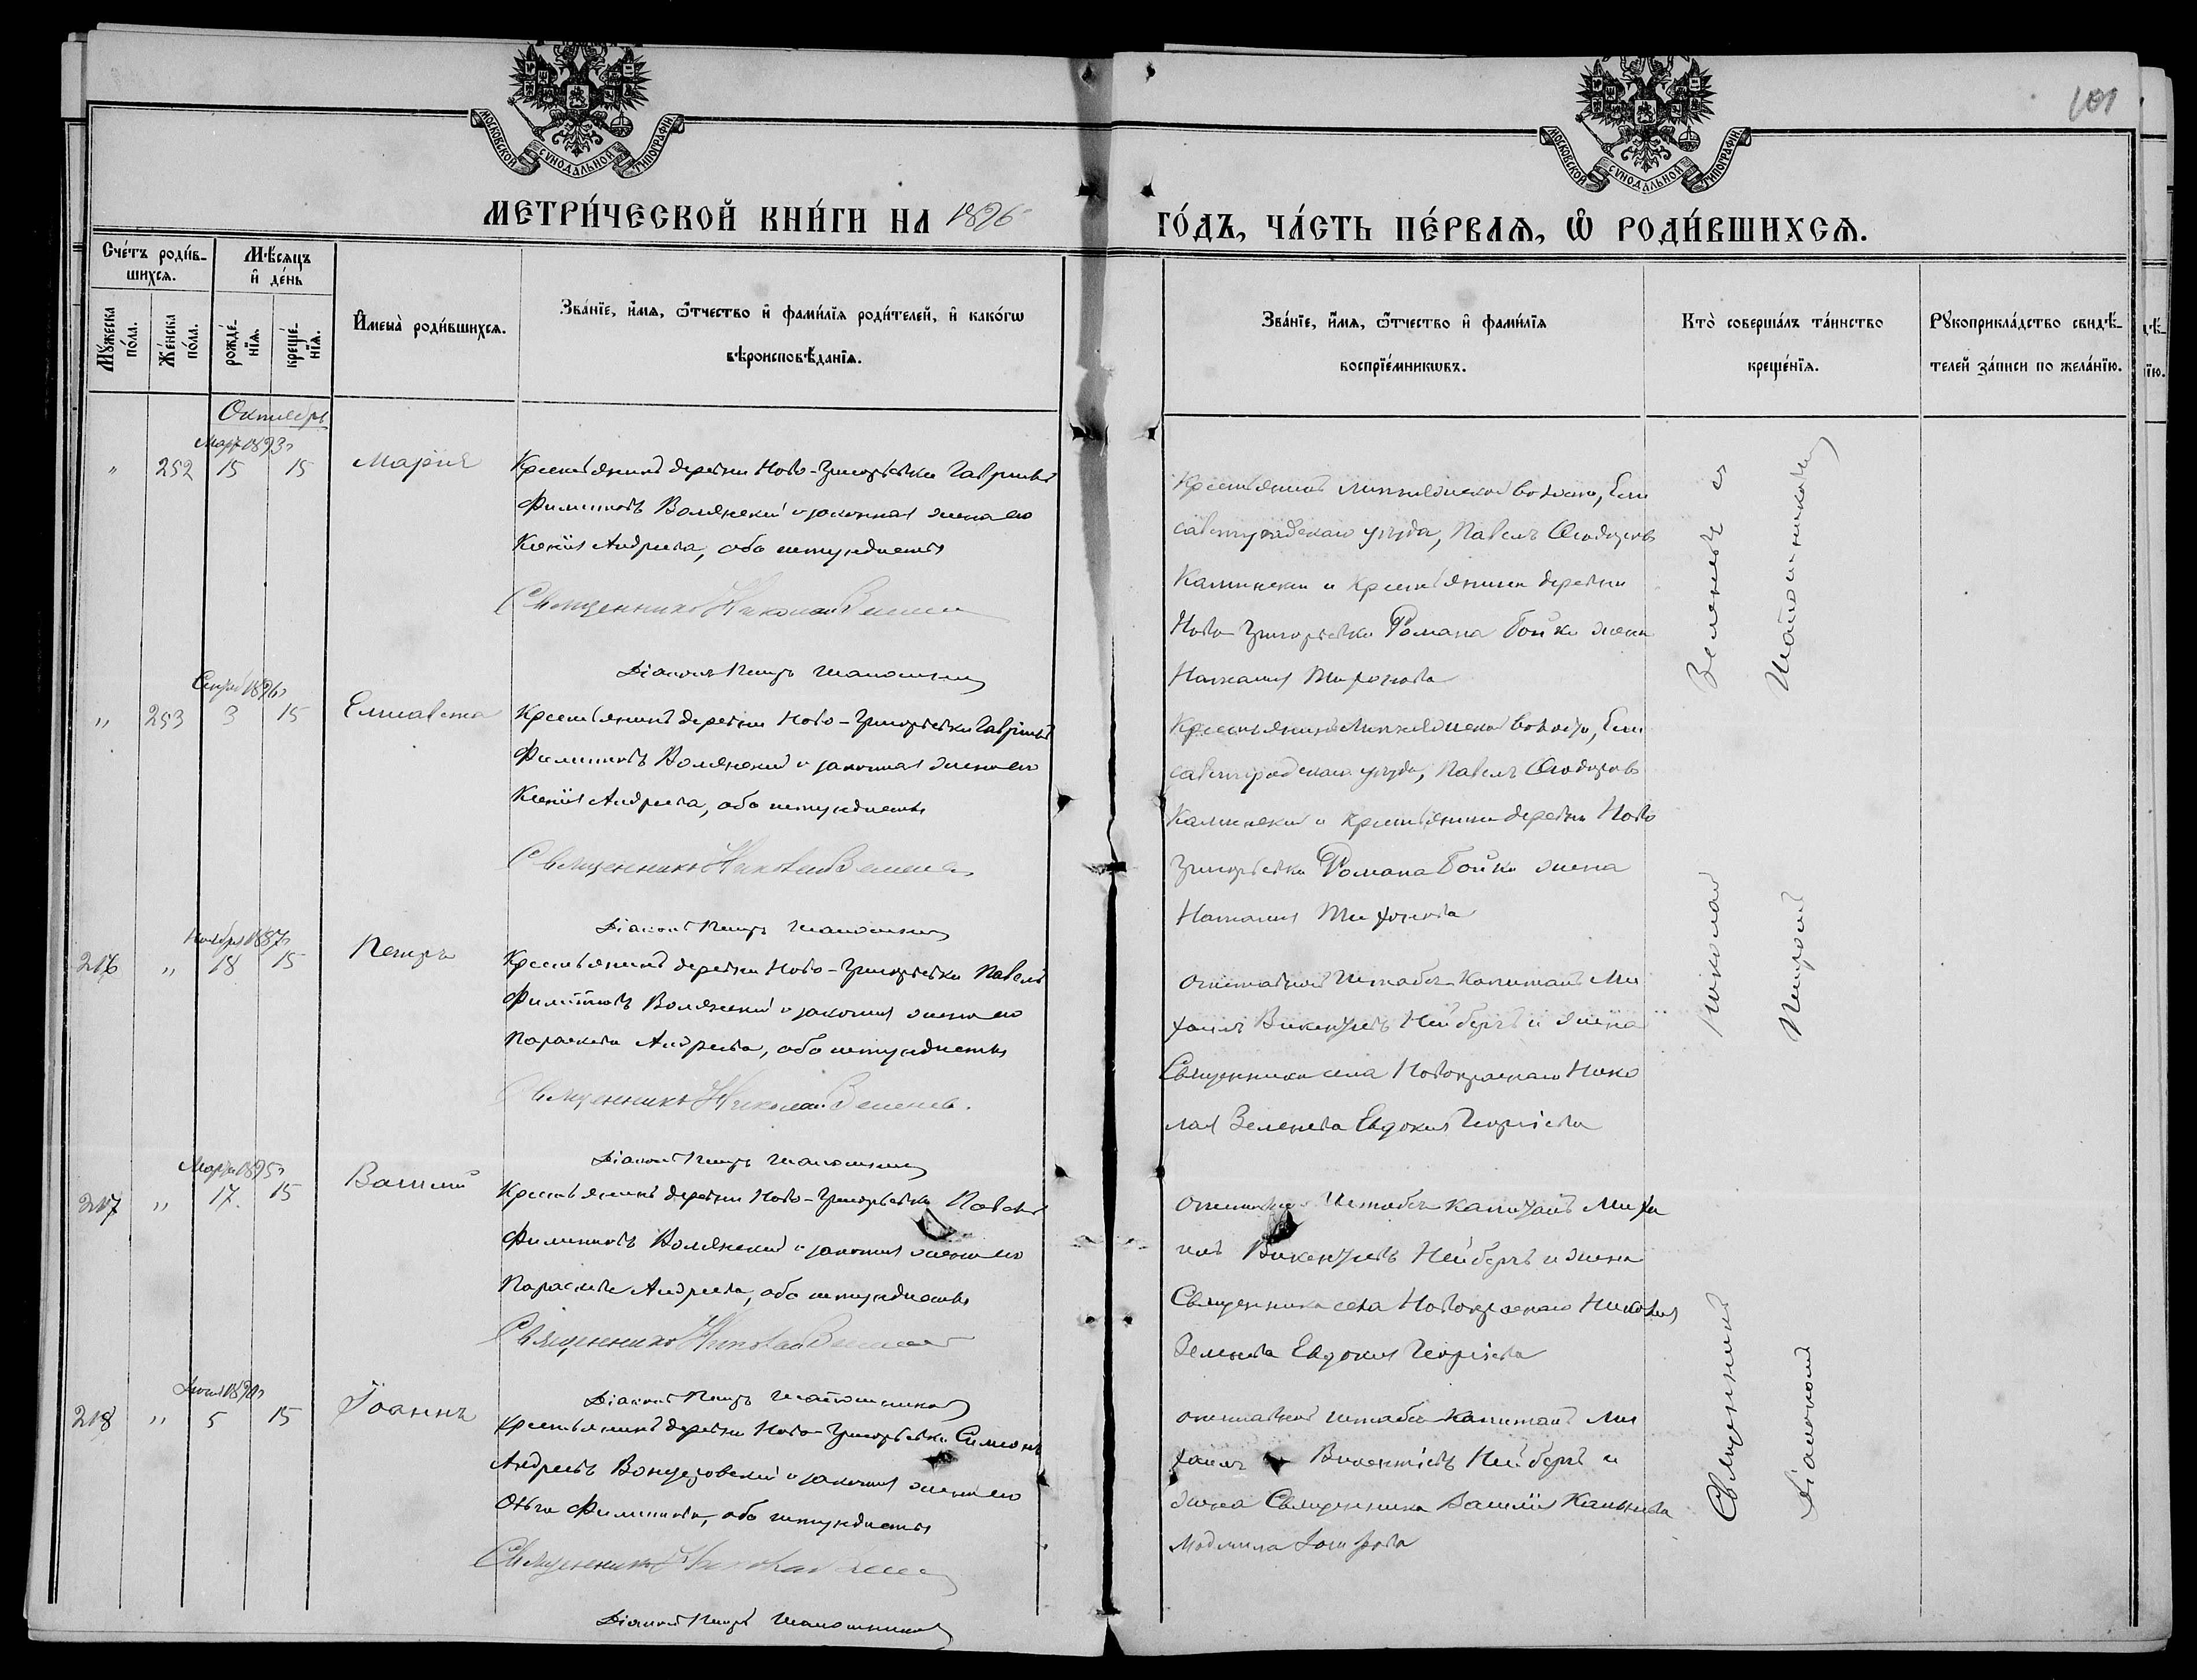 101
МОСКОВСКОЙ СѴНОДАЛЬНОЙ ТИПОГРАФІИ
МОСКОВСКОЙ СѴНОДАЛЬНОЙ ТИПОГРАФІИ
МЕТРИ́ЧЕСКОЙ КНИ́ГИ НА 1896
ГО́ДЪ, ЧА́СТЬ ПЕ́РВАѦ, Ѡ҆ РОДИ́ВШИХСѦ.
Сче́тъ роди́в-
шихсѧ.
Мѣ́сѧцъ
и҆ де́нь
Мꙋ́жеска
по́ла.
Же́нска
по́ла.
рожде́-
нїѧ.
креще́-
нїѧ.
И҆мена̀ роди́вшихсѧ.
Зва́нїе, и҆́мѧ, ѻ҆́тчество и҆ фами́лїѧ роди́телей, и҆ како́гѡ
вѣроисповѣ́данїѧ.
Зва́нїе, и҆́мѧ, ѻ҆́тчество и҆ фами́лїѧ
воспрїе́мникѡвъ.
Кто̀ соверша́лъ та́инство
креще́нїѧ.
Рꙋкоприкла́дство свидѣ́-
телей за́писи по жела́нїю.
Октябрь
Март 1893г
„ 252 15 15 Марія
Крестьянинъ деревни Ново-Григорьевки Гавріилъ
Филиповъ Волянскій и законная жена его
Ксенія Андреева, оба штундисты
Священникъ Николай Зеленев
Діаконъ Петръ Шапошников
Крестьянинъ волости, Ели
саветградскаго уѣзда, Павелъ Ѳеодоровъ
Калинскій и крестьянина деревни
Ново-Григорьевки Романа Бойка жена
Наталія Тихонова
Сентяб 1896г
„ 253 3 15 Елисавета
Крестьянинъ деревни Ново-Григорьевки Гавріилъ
Филиповъ Волянскій и законная жена его
Ксенія Андреева, оба штундисты
Священникъ Николай Зеленев
Діаконъ Петръ Шапошников
Крестьянинъ волости, Ели
саветградскаго уѣзда, Павелъ Ѳеодоровъ
Калинскій и крестьянина деревни Ново
Григорьевки Романа Бойка жена
Наталія Тихонова
Ноября 1887г
216 „ 18 15 Петръ
Крестьянинъ деревни Ново-Григорьевки Павелъ
Филиповъ Волянскій и законная жена его
Параскева Андреева, оба штундисты
Священникъ Николай Зеленев.
Діаконъ Петръ Шапошников
Отставной Штабсъ-Капитанъ Ми
хаилъ Викентьевъ Нейбергъ и жена
Священника села Новокраснаго Нико
лая Зеленева Евдокія Георгіева
Марта 1895г
217 „ 17 15 Василій
Крестьянинъ деревни Ново-Григорьевки Павелъ
Филиповъ Волянскій и законная жена его
Параскева Андреева, оба штундисты
Священникъ Николай Зеленев
Діаконъ Петръ Шапошников
Отставной Штабсъ Капитанъ Миха
илъ Викентьевъ Нейбергъ и жена
Священника села Новокраснаго Николая
Зеленева Евдокія Георгіева
218 „ 5 15 Іоаннъ
Крестьянинъ деревни Ново-Григорьевки Симеонъ
Андреевъ и законная жена его
Ольга Филипова, оба штундисты
Священникъ Николай Зеленев
Діаконъ Петръ Шапошников
Отставной Штабсъ Капитанъ Ми
хаилъ Викентіевъ Нейбергъ и
жена Священника Василія
Людмила
Священникъ Николай Зеленевъ съ
Діакономъ Петромъ Шапошниковым